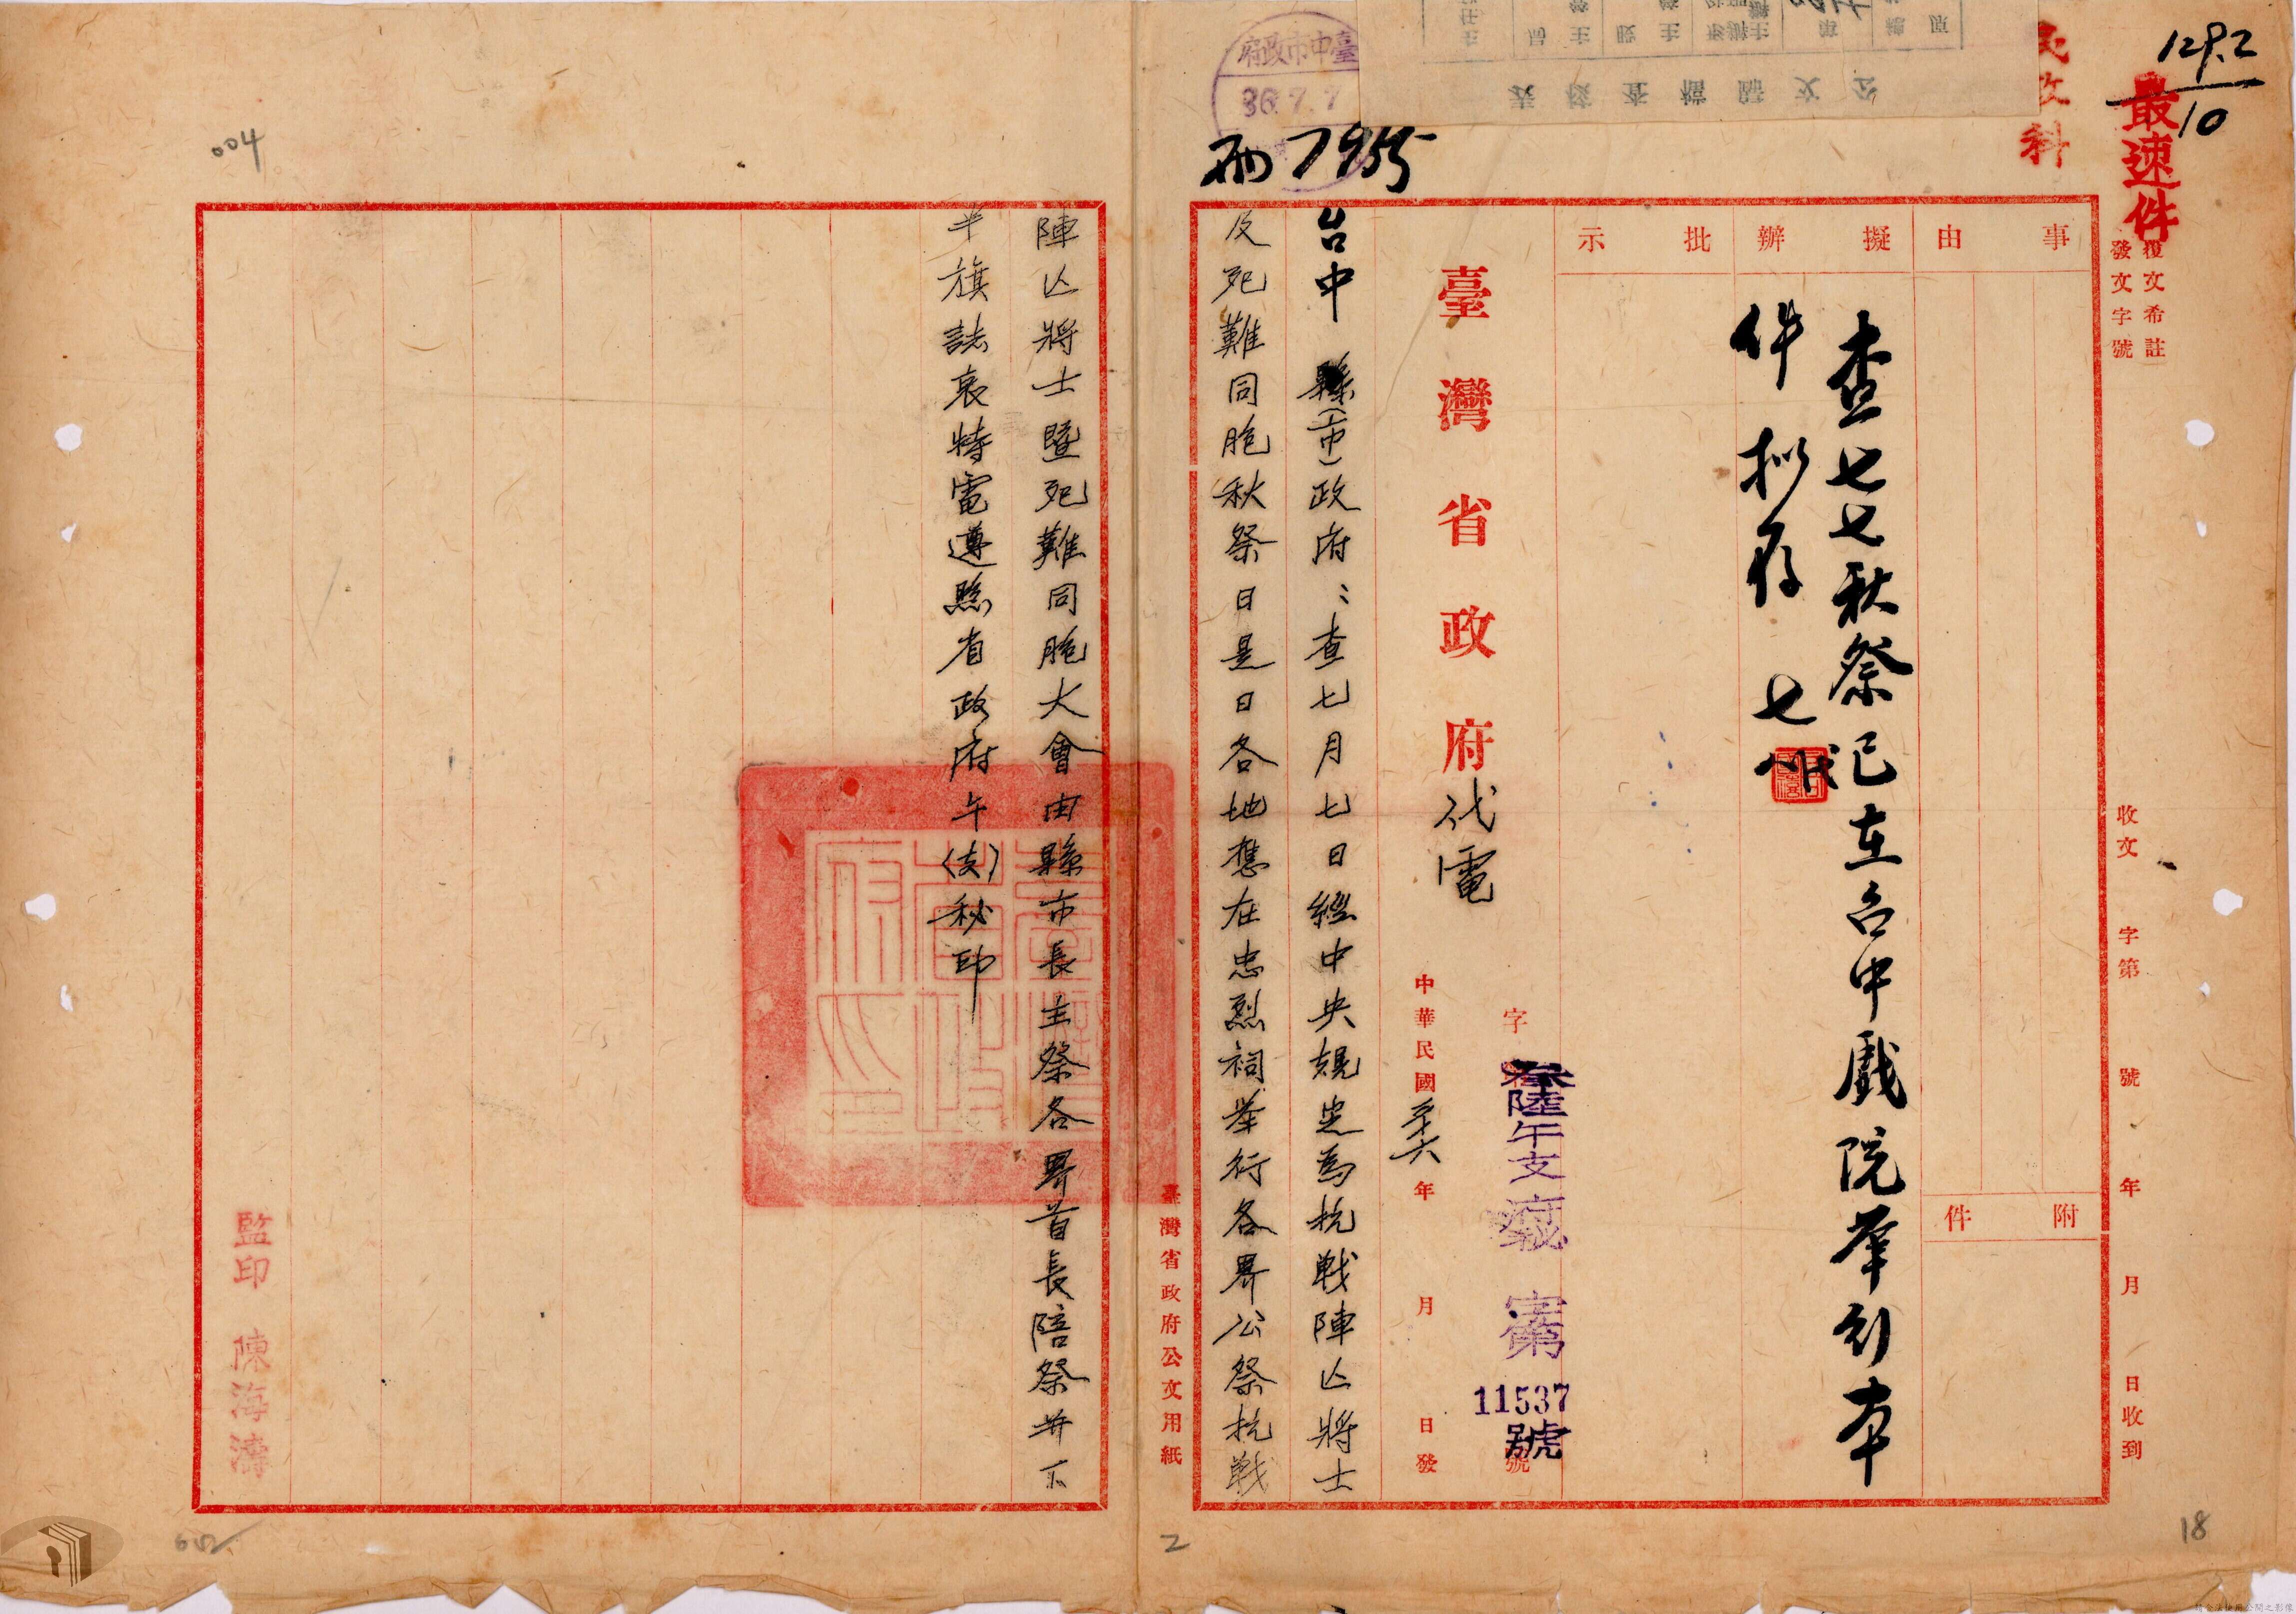 129.2
10
最速件
民政科
覆文希註
發文字號
收文 字第 號 年 月 日收到
事由
擬辦
批示
附件
查七七秋祭已在台中戲院舉行本
件擬存 七
臺灣省政府代電
字
參陸午支 第 11537 號
中華民國 年 月 日發
台中縣(市)政府:查七月七日經中央規定為抗戰陣亡將士
及死難同胞秋祭日是日各地應在忠烈祠举行各界公祭抗戰
陣亡將士暨死難同胞大會由縣市長主祭各界首長陪祭並下
半旗誌哀特電遵照省政府午(支)秘印
臺灣省政府公文用紙
監印 陳海濤
臺中市政府
36.7.7
丙 7955
公文歸檔查核表
004
2
18